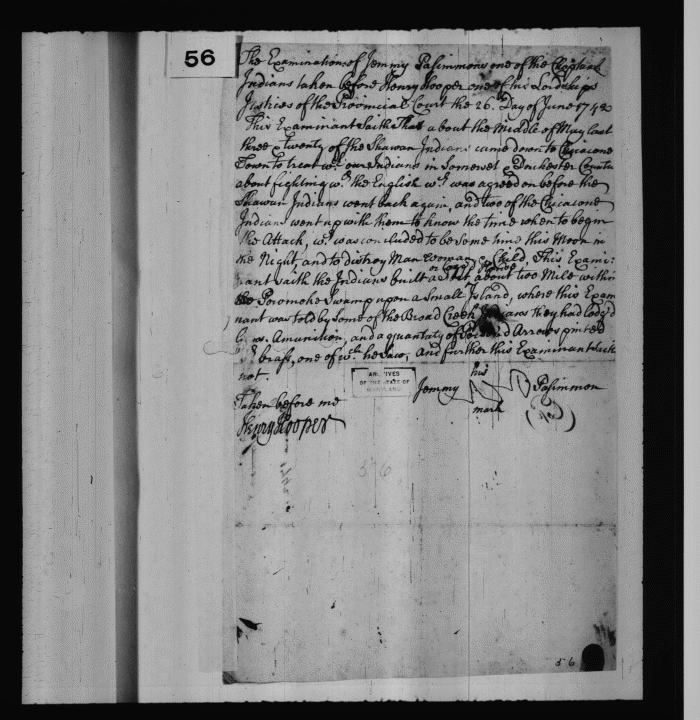 56
The Examination of Jemmy Pasimmons one of the
Indians taken before Henry Hooper one of his Lordships
Justices of the Provincial Court the 26. Day of June 1742
This Examinant Saith That about the Middle of May last
three & twenty of the Shawan Indians came down to Chicacone
Town to treat wth. our Indians in Somerset & Dorchester County
about fighting wth. the English wch. was agreed on before the
Shawan Indians went back again, and two of the Chicacone
Indians went up with them to know the time when to begin
the Attack, wch. was concluded to be some time this Moon in
the Night, and to distroy Man Woman & Child, This Exami:
nant saith the Indians built a about two Mile within
the Pocomoke Swamp upon a Small Island, where this Exam
nant was told by some of the Broad Creek Indians they had lodg'd
Amunition, and a quantaty of Arrows pinted
brass, one of wch. he saw, and further this Examinant saith
not.
ARCHIVES
OF THE STATE OF
MARYLAND
his
Jemmy Pasimmon
mark
Taken before me
Henry Hooper
56
56